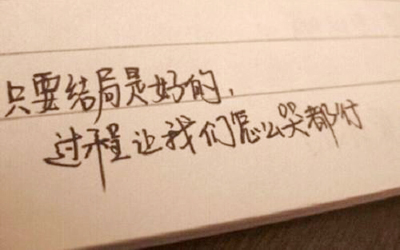 只要结局是好的，
过程让我们怎么哭都行